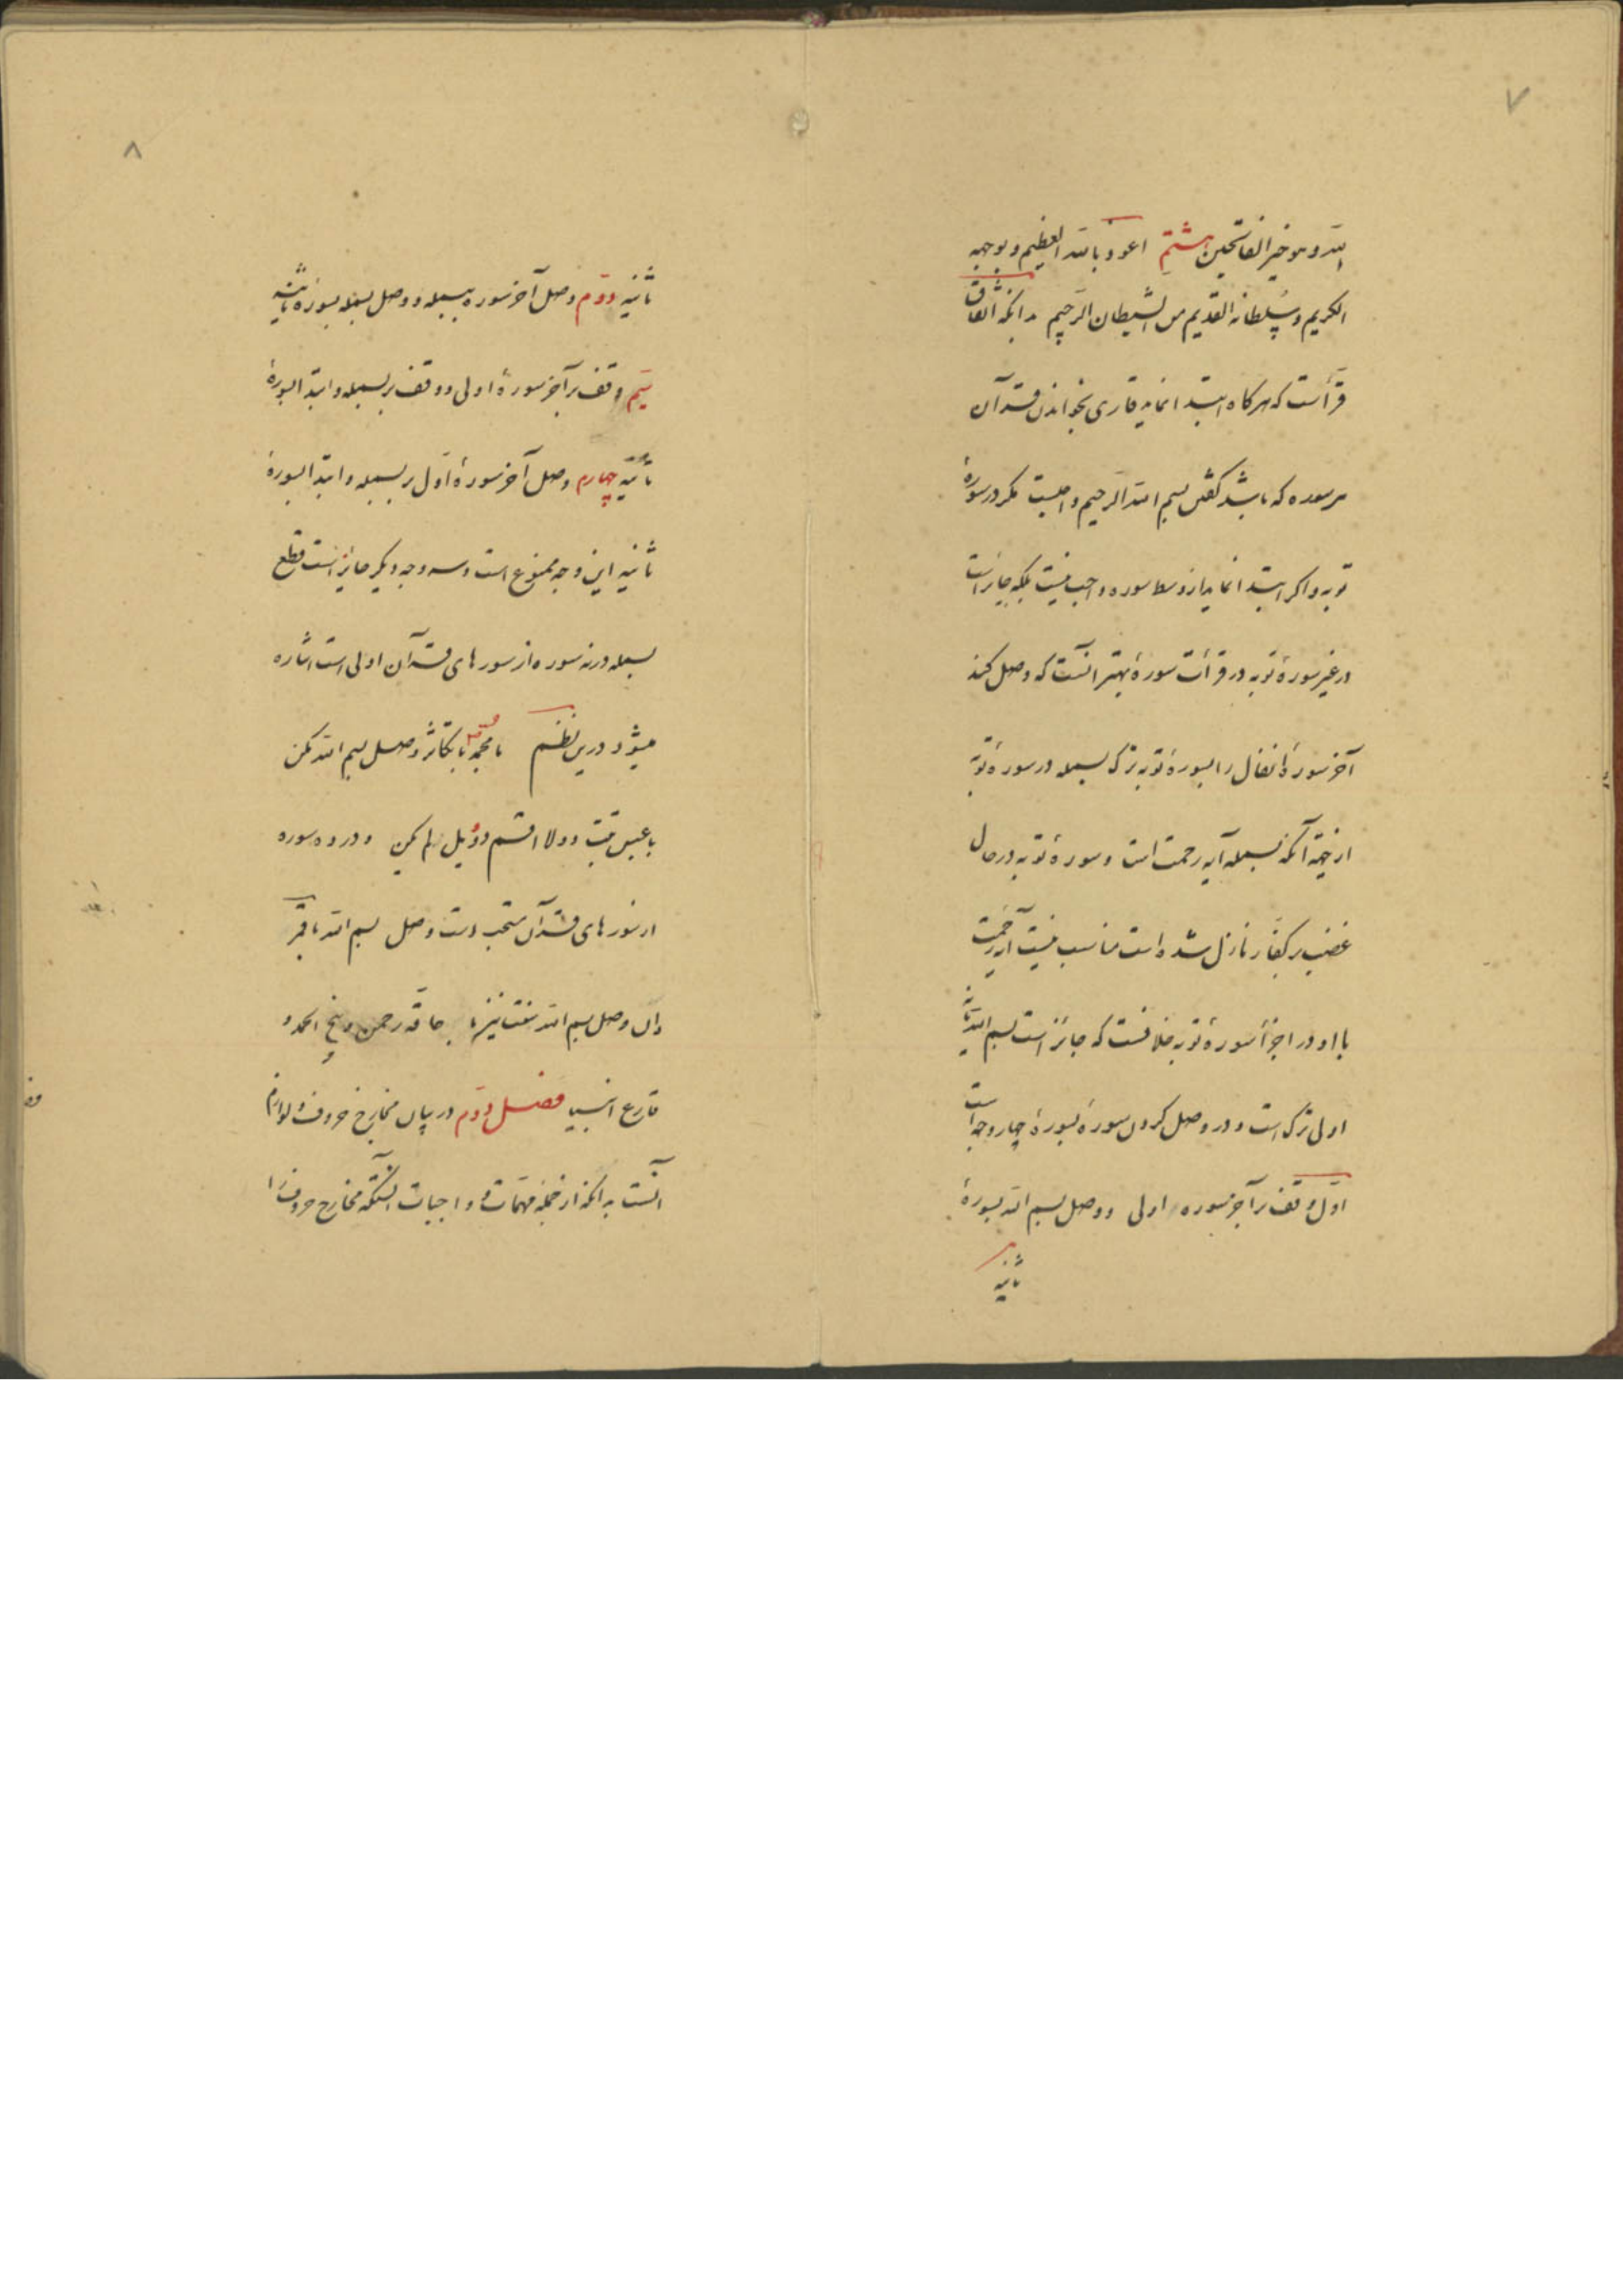 ۷
الله و هو خیر الفاتحین هشتم اعوذ بالله العظیم و بوجهه
الکریم و سلطانه القدیم من الشیطان الرجیم بدانکه اتفاق
قرأست که هرکاه ابتدا نماید قاری بخواندن قرآن
هر سوره که باشد کفتن بسم الله الرحیم واجبست مکر در سورۀ
توبه و اکر ابتدا نماید از وسط سوره واجب نیست بلکه جایز است
در غیر سورۀ توبه در قرائت سورۀ بهتر آنست که وصل کند
آخر سورۀ انفال را بسورۀ توبه بترک بسمله در سورۀ توبه
از جهة آنکه بسمله آیه رحمت است و سورۀ توبه در حال
غضب بر کفار نازل شده است مناسب نیست آیه رحمت
با او و در اجزأ سورۀ توبه خلافست که جائز است بسم الله یا نه
اولی ترک است و در وصل کردن سوره بسورۀ چهار وجه است
اول وقف بر آخر سوره اولی و وصل بسم الله بسورۀ
ثانیه
۸
ثانیه دوم وصل آخر سوره ببسمله و وصل بسمله بسوره ثانیه
سیم وقف بر آخر سورۀ اولی و وقف بر بسمله و ابتدا بسورۀ
ثانیه چهارم وصل آخر سورۀ اول ببسمله و ابتدا بسورۀ
ثانیه این وجه ممنوع است و سه وجه دیکر جایز است قطع
بسمله در نه سوره از سورهای قرآن اولی است اشاره
میشود درین نظم با محمد با تکاثر وصل بسم الله مکن
با عبس تبت دو لا اقسم دو ویل لم یکن و در ده سوره
از سورهای قرآن مستحب است وصل بسم الله با قمر
دان وصل بسم الله نیز با حاقه رحمن و پنج الحمد و
قارع انبیا فصل دوم در بیان مخارج حروف و لوازم
آنست بدانکه از جمله مهمات و واجبات آنستکه مخارج حروف را